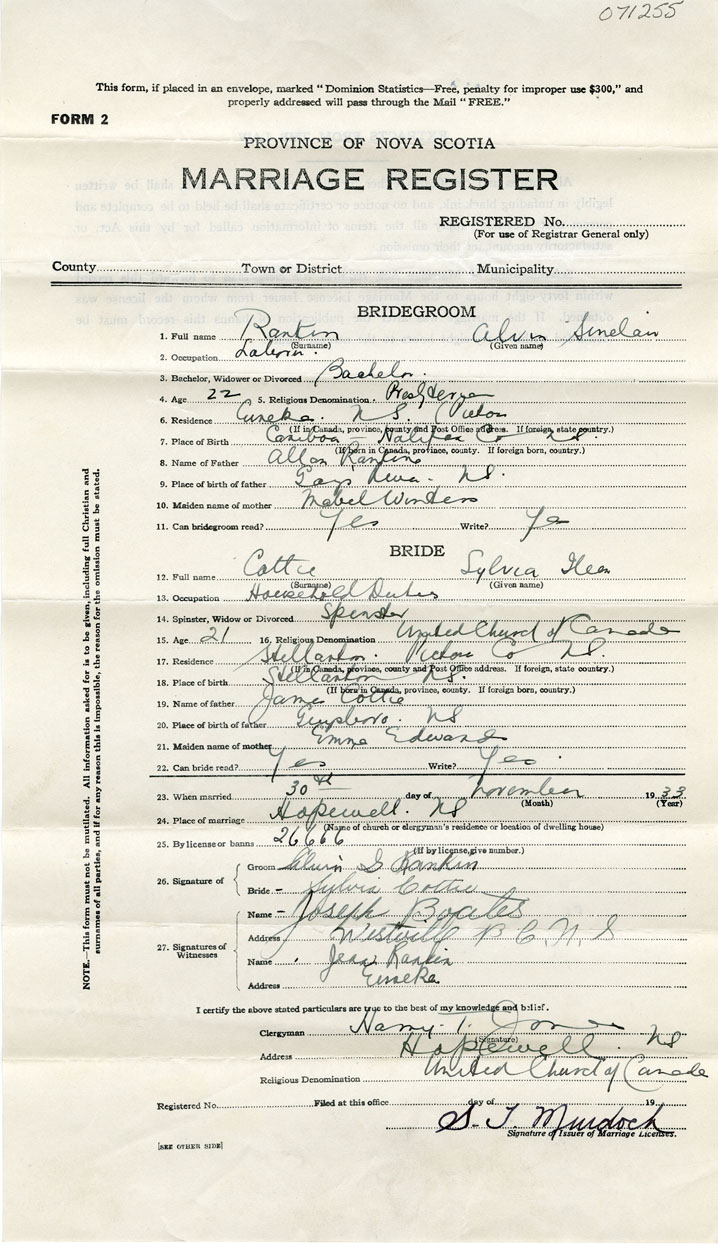 071255
This form, if placed in an envelope, marked "Dominion Statistics—Free, penalty for improper use $300," and
properly addressed will pass through the Mail "FREE."
FORM 2
PROVINCE OF NOVA SCOTIA
MARRIAGE REGISTER
REGISTERED No.
(For use of Registrar General only)
County Town or District Municipality
BRIDEGROOM
1. Full name Rankin Alvin Sinclair
(Surname) (Given name)
2. Occupation Laborer.
3. Bachelor, Widower or Divorced Bachelor.
4. Age 22 5. Religious Denomination Presbyterian
6. Residence Eureka. N.S. (Pictou
(If in Canada, province, county and Post Office address. If foreign, state country.)
7. Place of Birth Caribou — Halifax Co NS.
(If born in Canada, province, county. If foreign born, country.)
8. Name of Father Allan Rankin
9. Place of birth of father Gays River. NS.
10. Maiden name of mother Mabel
11. Can bridegroom read? Yes Write? Yes
BRIDE
12. Full name Cottie Sylvia
(Surname) (Given name)
13. Occupation Household Duties
14. Spinster, Widow or Divorced Spinster
15. Age 21 16. Religious Denomination United Church of Canada
17. Residence Stellarton. Pictou Co NS.
(If in Canada, province, county and Post Office address. If foreign, state country.)
18. Place of birth Stellarton NS.
(If born in Canada, province, county. If foreign born, country.)
19. Name of father James Cottie
20. Place of birth of father Guysboro. NS
21. Maiden name of mother Emma Edwards
22. Can bride read? Yes Write? Yes.
23. When married 30th day of November 1933
(Month) (Year)
24. Place of marriage Hopewell. NS
(Name of church or clergyman's residence or location of dwelling house)
25. By license or banns 26666
(If by license, give number.)
26. Signature of
Groom Alvin S Rankin
Bride – Sylvia Cottie
27. Signatures of Witnesses
Name – Joseph Boates
Address Westville P.C. N.S
Name Jean Rankin
Address Eureka
I certify the above stated particulars are true to the best of my knowledge and belief.
Clergyman Harry T. Jones
(Signature)
Address Hopewell. NS
Religious Denomination United Church of Canada
Registered No. Filed at this office day of 19
S. T. Murdoch
Signature of Issuer of Marriage Licenses.
[SEE OTHER SIDE]
NOTE.—This form must not be mutilated. All information asked for is to be given, including full Christian and
surnames of all parties, and if for any reason this is impossible, the reason for the omission must be stated.